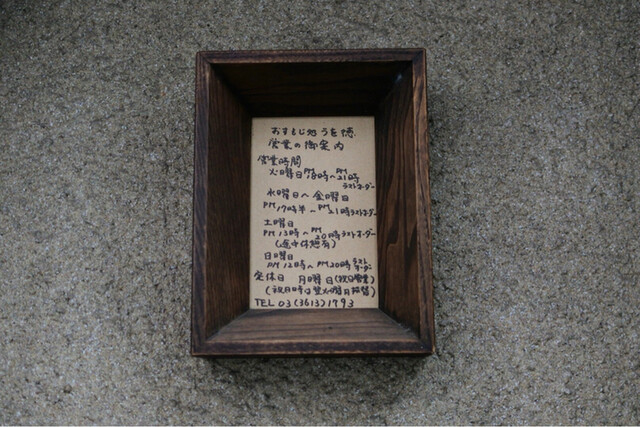 おすもじ処 うを徳
営業の御案内
営業時間
火曜日 PM18時〜PM21時
ラストオーダー
水曜日〜金曜日
PM17時半〜PM21時ラストオーダー
土曜日
PM13時〜PM20時ラストオーダー
(途中休憩有)
日曜日
PM12時〜PM20時ラストオーダー
定休日 月曜日(祝日営業)
(祝日時は翌火曜日振替)
TEL 03(3613)1793